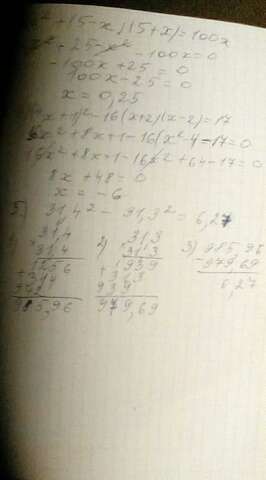 x² + (5-x)(5+x) = 100x
x² + 25 - x² - 100x = 0
-100x + 25 = 0
100x - 25 = 0
x = 0,25
(4x+1)² - 16(x+2)(x-2) = 17
16x² + 8x + 1 - 16(x² - 4 - 17 = 0
16x² + 8x + 1 - 16x² + 64 - 17 = 0
8x + 48 = 0
x = -6
5) 31,4² - 31,3² = 6,27
1) 31,4 2) 31,3 3) 985,96
31,4 31,3 - 979,69
1256 + 939 6,27
+ 314 313
942 939
985,96 979,69